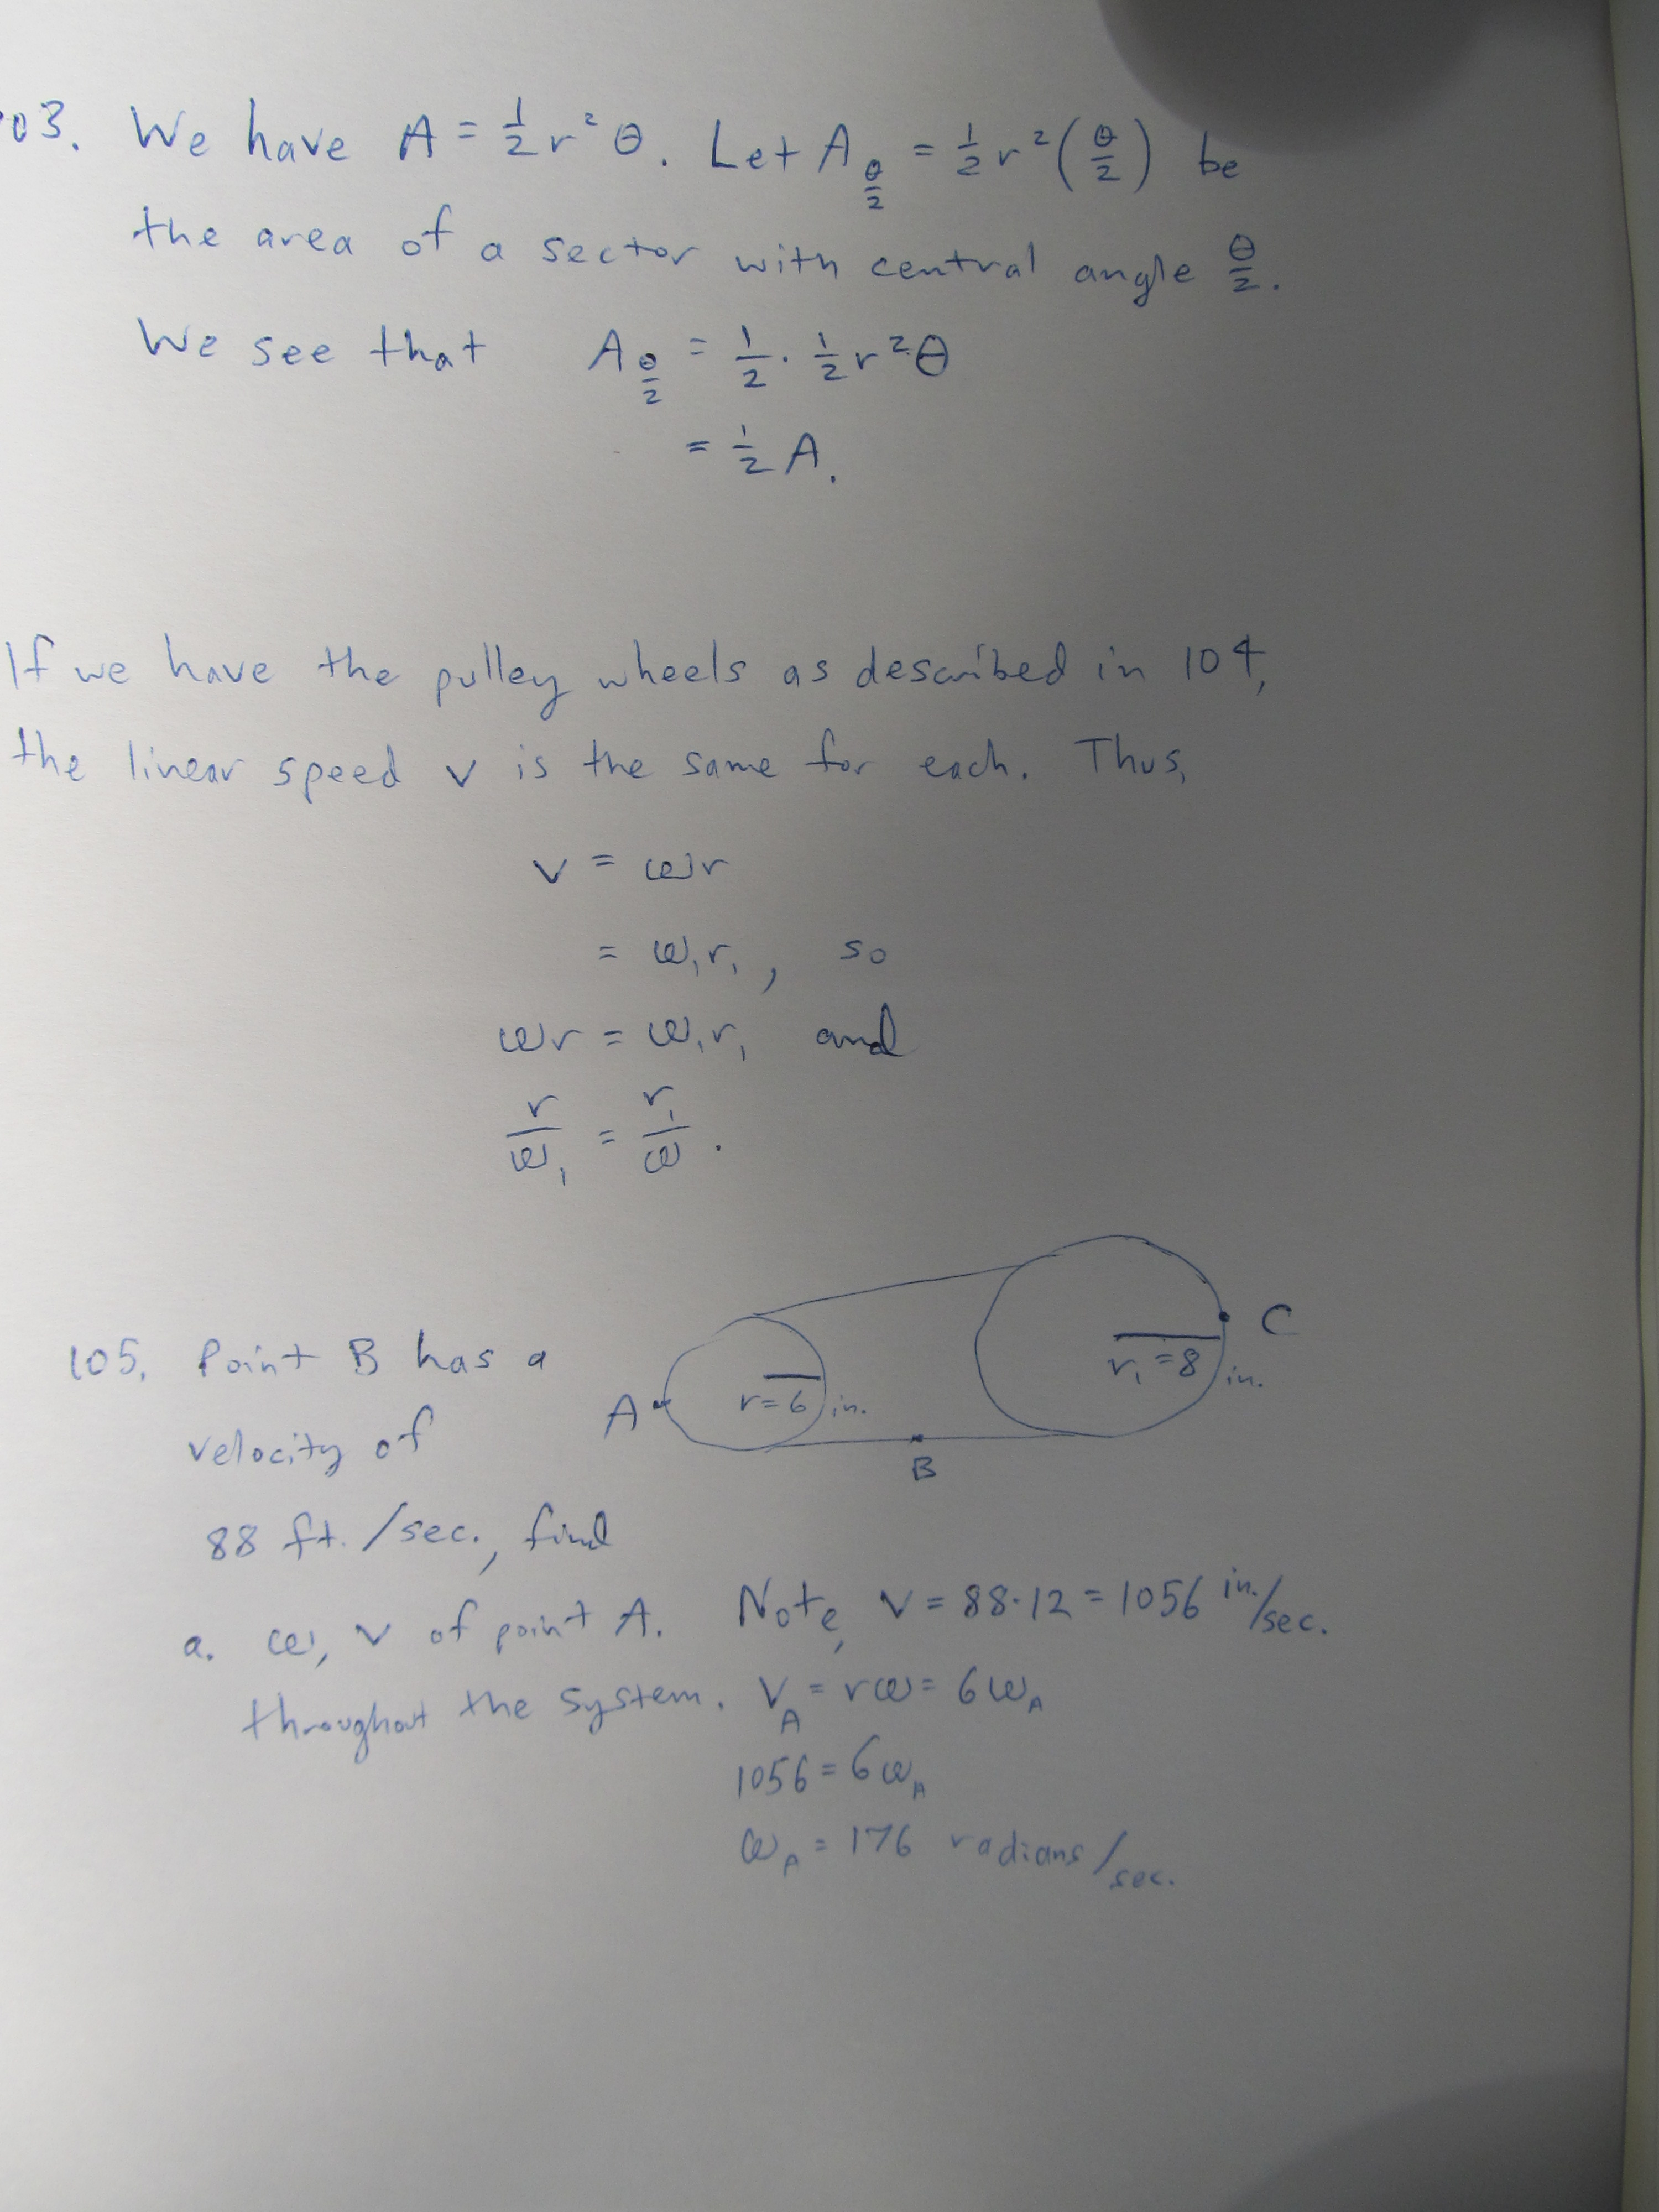 03. We have A = ½ r² θ. Let A_{θ/2} = ½ r² (θ/2) be
the area of a sector with central angle θ/2.
We see that A_{θ/2} = ½ · ½ r² θ
= ½ A.
If we have the pulley wheels as described in 104,
the linear speed v is the same for each. Thus,
v = ωr
= ω₁r₁, so
ωr = ω₁r₁ and
r/ω₁ = r₁/ω.
105. Point B has a
velocity of
88 ft./sec., find
A r = 6 in. B r₁ = 8 in. C
a. ω, v of point A. Note, v = 88·12 = 1056 in./sec.
throughout the system. V_A = rω = 6ω_A
1056 = 6ω_A
ω_A = 176 radians/sec.